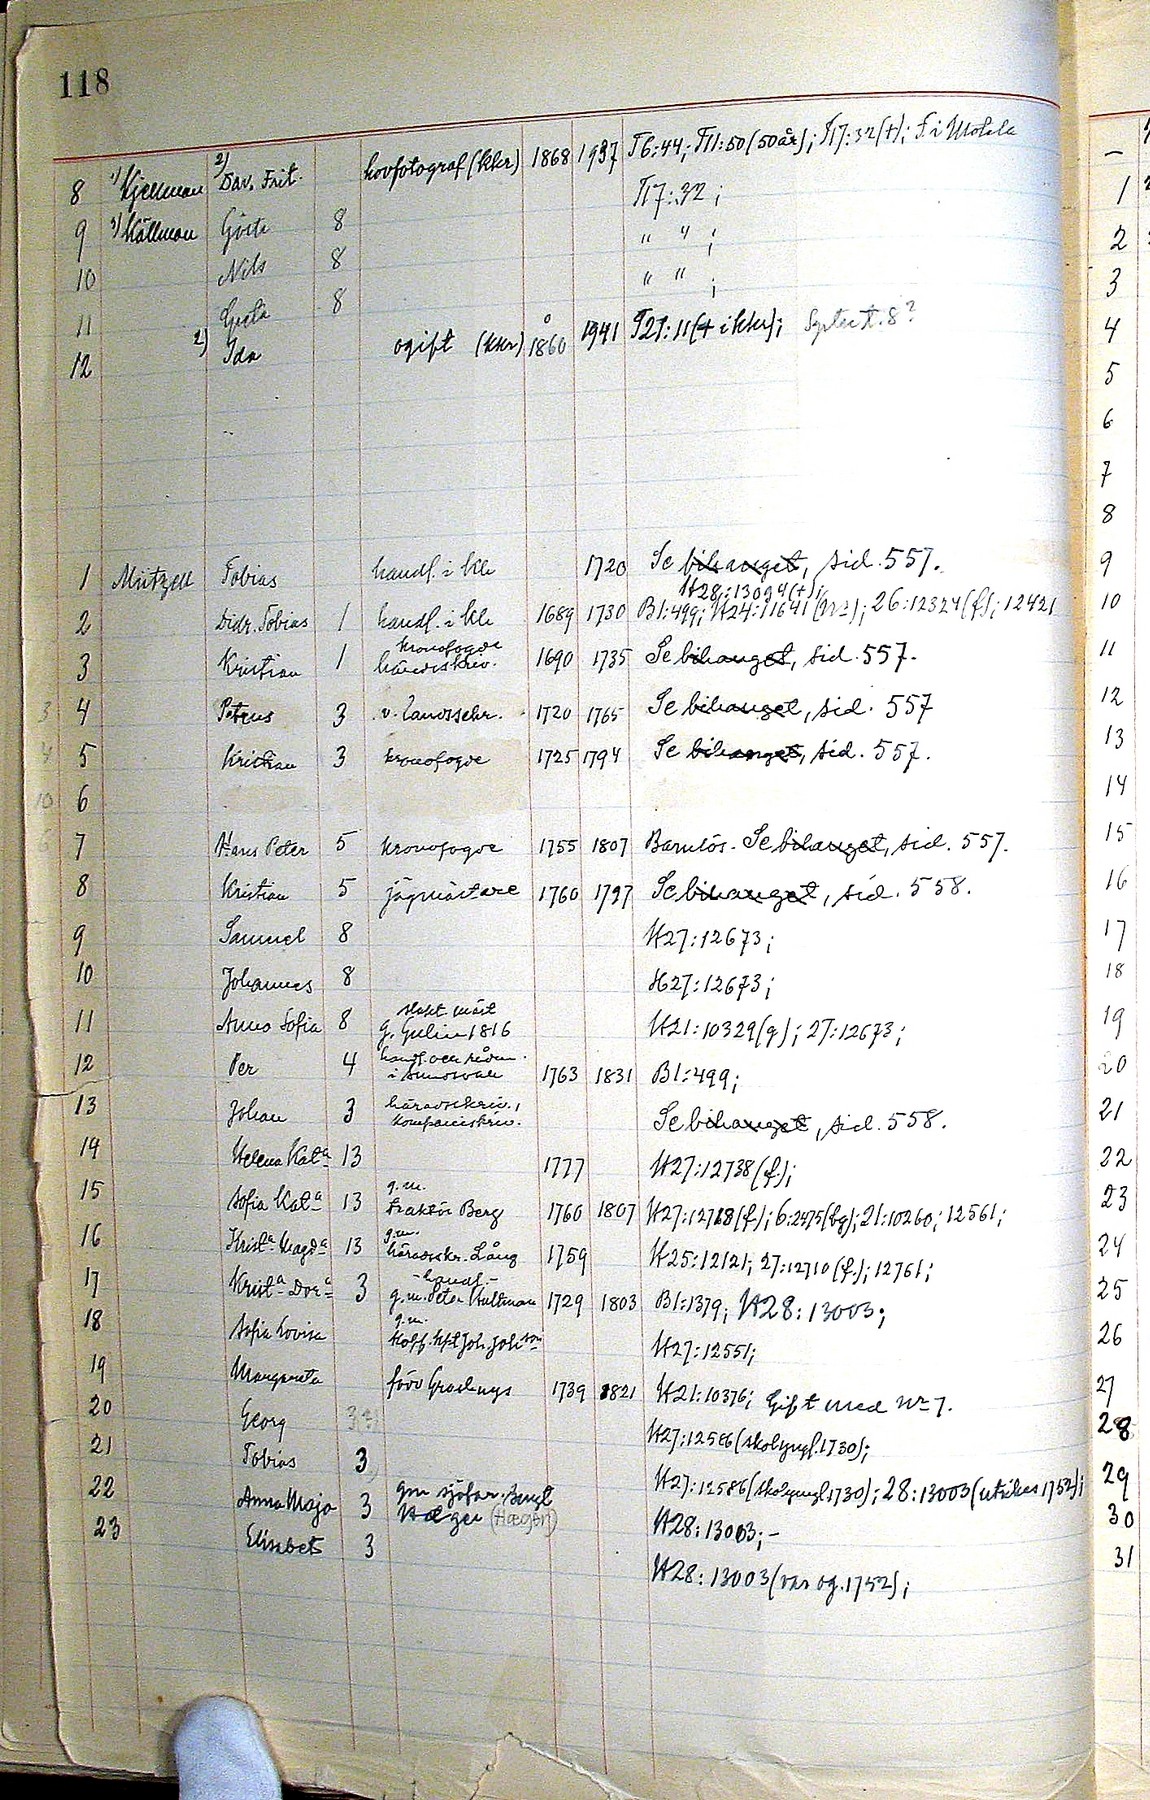 118
8 1) Kjellman 2) Dav. Frit. hovfotograf (kkr) 1868 1937 T6:44; T11:50 (50 år); T17:32 (+); F. i Motala
9 3) Källman Gösta 8 T17:32;
10 Nils 8 " " ;
11 Greta 8 " " ;
12 2) Ida ogift (kkr) 1860 1941 T21:11 (+ i kkr); Syster t. 8?
1 Mützell Tobias handl. i kk 1720 Se bihanget, sid. 557.
H28:13094 (+);
2 Didr. Tobias 1 handl. i kk 1689 1730 B1:499; H24:11641 (nr); 26:12324 (f); 12421
3 Kristian 1 kronofogde häradskriv. 1690 1735 Se bihanget, sid. 557.
4 Petrus 3 v. landssekr. 1720 1765 Se bihanget, sid. 557
5 Kristian 3 kronofogde 1725 1794 Se bihanget, sid. 557.
6
7 Hans Peter 5 kronofogde 1755 1807 Barnlös. Se bihanget, sid. 557.
8 Kristian 5 jägmästare 1760 1797 Se bihanget, sid. 558.
9 Samuel 8 H27:12673;
10 Johannes 8 H27:12673;
11 Anna Sofia 8 g. Gulin 1816 H21:10329 (g); 27:12673;
12 Per 4 handl. och rådm. i Sundsvall 1763 1831 B1:499;
13 Johan 3 häradskriv., kompaniskriv. Se bihanget, sid. 558.
14 Helena Kata 13 1777 H27:12738 (f.);
15 Sofia Kata 13 g.m. traktör Berg 1760 1807 H27:12718 (f.); 6:2475 (bg); 21:10260; 12561;
16 Krista Magda 13 g.m. häradsskr. Lång 1759 H25:12121; 27:12710 (f.); 12761;
17 Krista Dora 3 -handl.- g.m. Peter Hultman 1729 1803 B1:1379; H28:13003;
18 Sofia Lovisa g.m. Koff. kpt Joh. Johsson H27:12551;
19 Margareta född Grodnys 1739 1821 H21:10376; Gift med No 7.
20 Georg 3 H27:12586 (skolyngl. 1730);
21 Tobias 3 H27:12586 (skolyngl. 1730); 28:13003 (utrikes 1752);
22 Anna Maja 3 gm sjöfar. Bengt Hæger (Hæger) H28:13003; -
23 Elisabet 3 H28:13003 (var og. 1752);
-
1
2
3
4
5
6
7
8
9
10
11
12
13
14
15
16
17
18
19
20
21
22
23
24
25
26
27
28
29
30
31